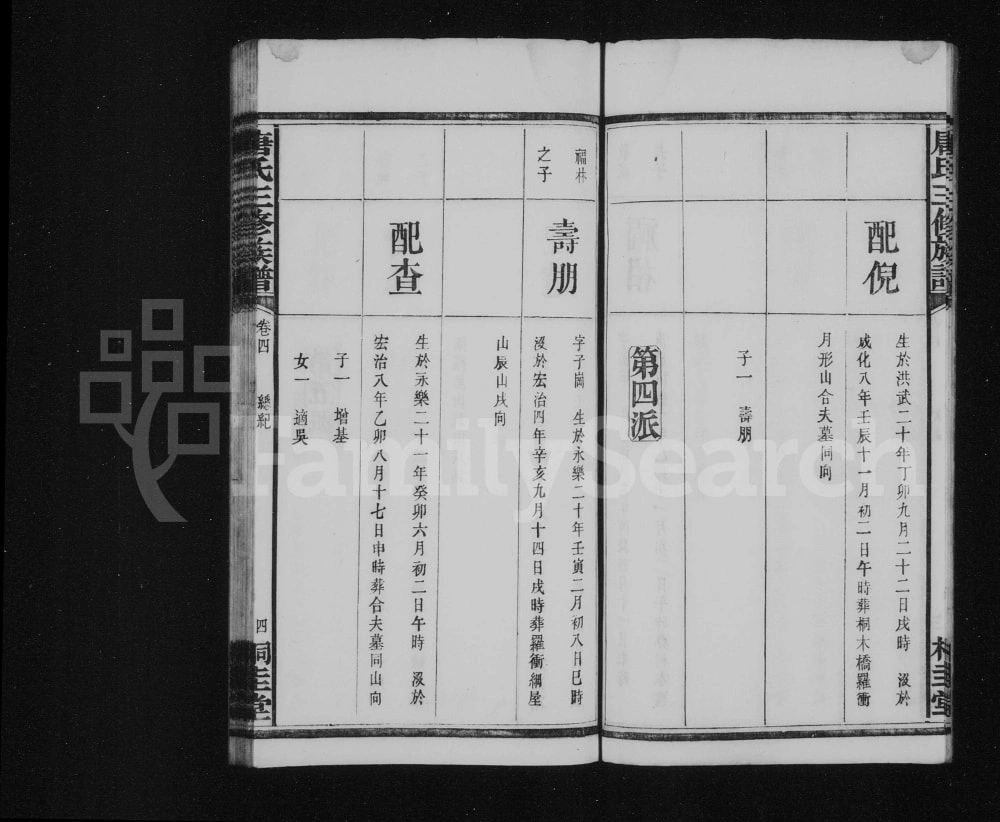 唐氏三修族譜
配倪
生於洪武二十年丁卯九月二十二日戌時 沒於
成化八年壬辰十一月初二日午時葬桐木橋羅衝
月形山合夫墓同向
子一 壽朋
第四派
福林
之子
壽朋
字子崗 生於永樂二十年壬寅二月初八日巳時
沒於宏治四年辛亥九月十四日戌時葬羅衝綱屋
山辰山戌向
配查
生於永樂二十一年癸卯六月初二日午時 沒於
宏治八年乙卯八月十七日申時葬合夫墓同山向
子一 增基
女一 適吳
唐氏三修族譜
卷四
總紀
四
桐圭堂
FamilySearch